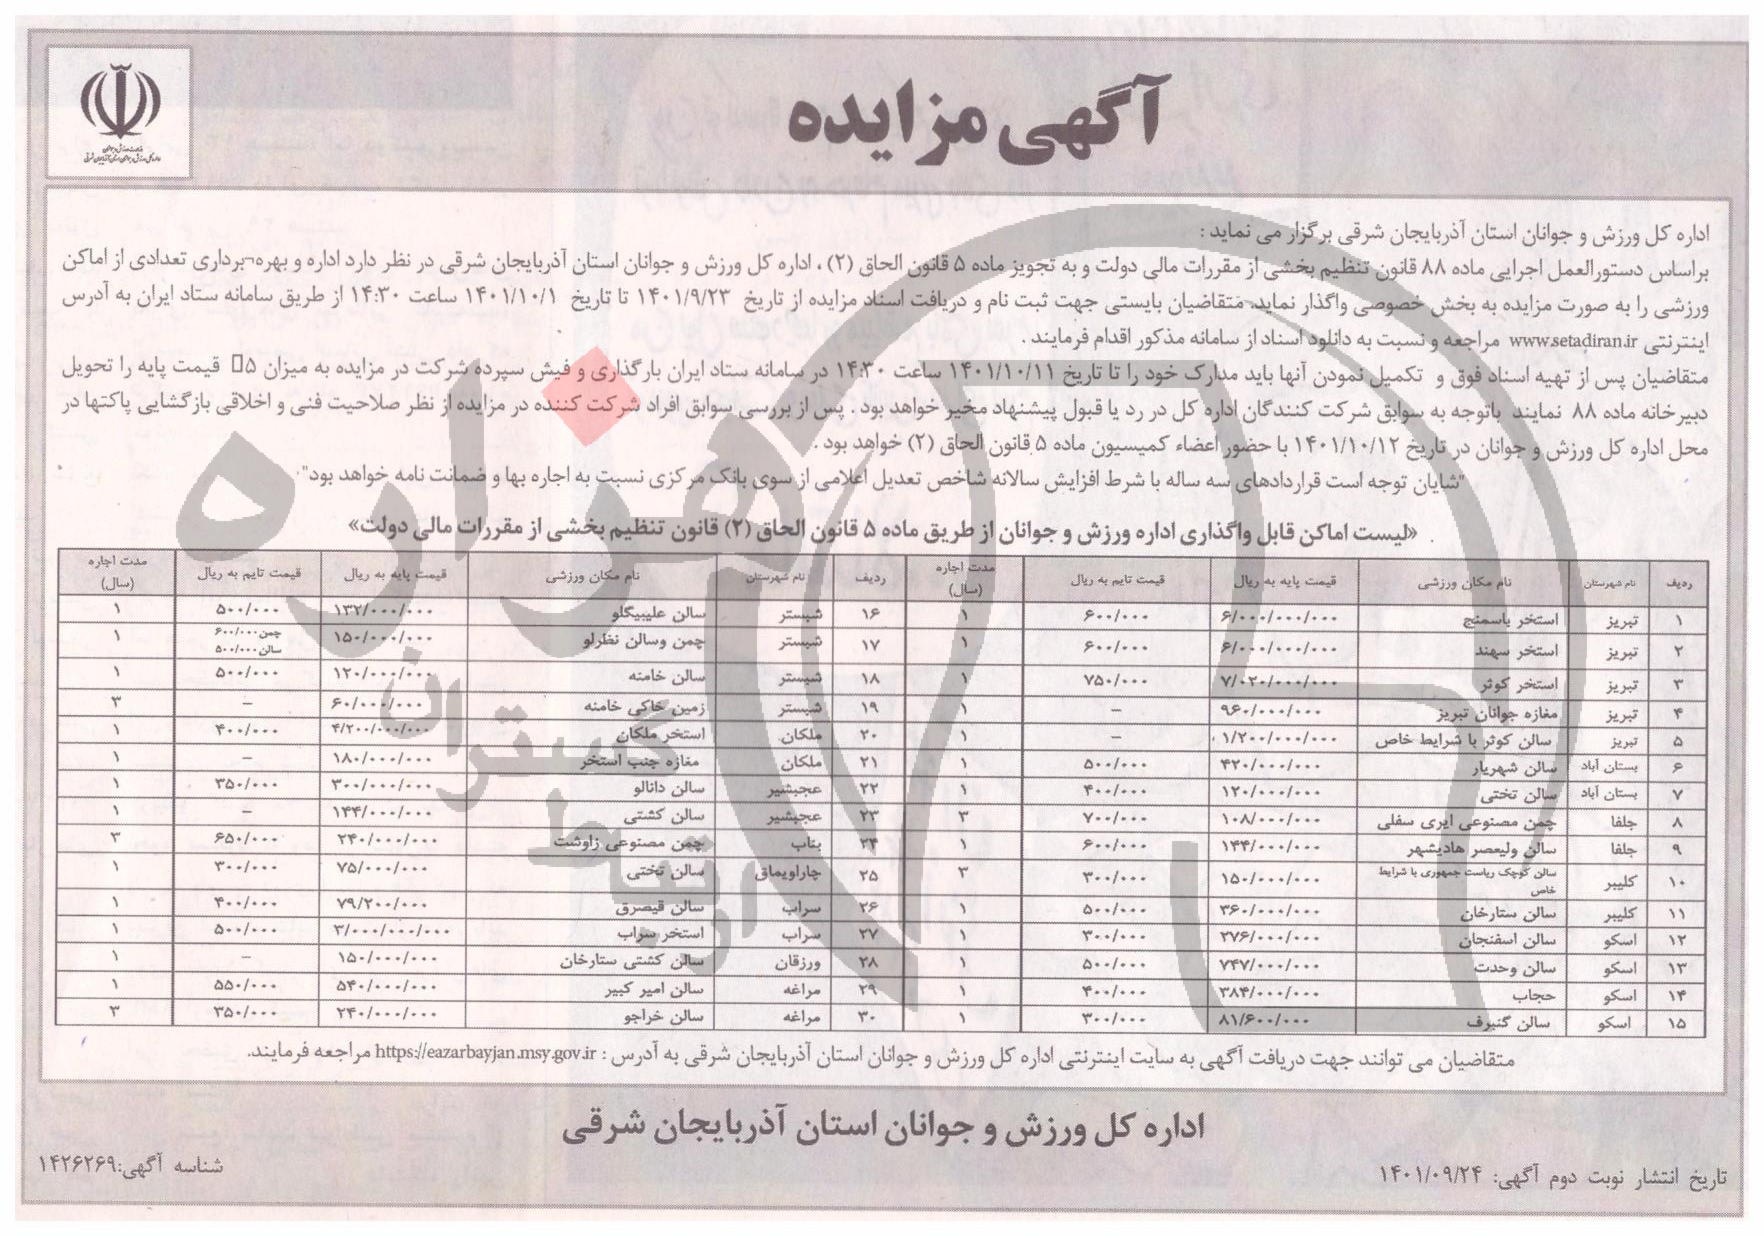 آگهی مزایده
اداره کل ورزش و جوانان استان آذربایجان شرقی برگزار می نماید :
براساس دستورالعمل اجرایی ماده ۸۸ قانون تنظیم بخشی از مقررات مالی دولت و به تجویز ماده ۵ قانون الحاق (۲) ، اداره کل ورزش و جوانان استان آذربایجان شرقی در نظر دارد اداره و بهره¬برداری تعدادی از اماکن
ورزشی را به صورت مزایده به بخش خصوصی واگذار نماید. متقاضیان بایستی جهت ثبت نام و دریافت اسناد مزایده از تاریخ ۱۴۰۱/۹/۲۳ تا تاریخ ۱۴۰۱/۱۰/۱ ساعت ۱۴:۳۰ از طریق سامانه ستاد ایران به آدرس
اینترنتی www.setadiran.ir مراجعه و نسبت به دانلود اسناد از سامانه مذکور اقدام فرمایند .
متقاضیان پس از تهیه اسناد فوق و تکمیل نمودن آنها باید مدارک خود را تا تاریخ ۱۴۰۱/۱۰/۱۱ ساعت ۱۴:۳۰ در سامانه ستاد ایران بارگذاری و فیش سپرده شرکت در مزایده به میزان ۵ قیمت پایه را تحویل
دبیرخانه ماده ۸۸ نمایند باتوجه به سوابق شرکت کنندگان اداره کل در رد یا قبول پیشنهاد مخیر خواهد بود . پس از بررسی سوابق افراد شرکت کننده در مزایده از نظر صلاحیت فنی و اخلاقی بازگشایی پاکتها در
محل اداره کل ورزش و جوانان در تاریخ ۱۴۰۱/۱۰/۱۲ با حضور اعضاء کمیسیون ماده ۵ قانون الحاق (۲) خواهد بود .
"شایان توجه است قراردادهای سه ساله با شرط افزایش سالانه شاخص تعدیل اعلامی از سوی بانک مرکزی نسبت به اجاره بها و ضمانت نامه خواهد بود"
«لیست اماکن قابل واگذاری اداره ورزش و جوانان از طریق ماده ۵ قانون الحاق (۲) قانون تنظیم بخشی از مقررات مالی دولت»
ردیف نام شهرستان نام مکان ورزشی قیمت پایه به ریال قیمت تایم به ریال مدت اجاره (سال) ردیف نام شهرستان نام مکان ورزشی قیمت پایه به ریال قیمت تایم به ریال مدت اجاره (سال)
۱ تبریز استخر باسمنج ۶/۰۰۰/۰۰۰/۰۰۰ ۶۰۰/۰۰۰ ۱ ۱۶ شبستر سالن علیبیگلو ۱۳۲/۰۰۰/۰۰۰ ۵۰۰/۰۰۰ ۱
۲ تبریز استخر سهند ۶/۰۰۰/۰۰۰/۰۰۰ ۶۰۰/۰۰۰ ۱ ۱۷ شبستر چمن وسالن نظرلو ۱۵۰/۰۰۰/۰۰۰ چمن ۶۰۰/۰۰۰ سالن ۵۰۰/۰۰۰ ۱
۳ تبریز استخر کوثر ۷/۰۲۰/۰۰۰/۰۰۰ ۷۵۰/۰۰۰ ۱ ۱۸ شبستر سالن خامنه ۱۲۰/۰۰۰/۰۰۰ ۵۰۰/۰۰۰ ۱
۴ تبریز مغازه جوانان تبریز ۹۶۰/۰۰۰/۰۰۰ – ۱ ۱۹ شبستر زمین خاکی خامنه ۶۰/۰۰۰/۰۰۰ – ۳
۵ تبریز سالن کوثر با شرایط خاص ۱/۲۰۰/۰۰۰/۰۰۰ – ۱ ۲۰ ملکان استخر ملکان ۴/۲۰۰/۰۰۰/۰۰۰ ۴۰۰/۰۰۰ ۱
۶ بستان آباد سالن شهریار ۴۲۰/۰۰۰/۰۰۰ ۵۰۰/۰۰۰ ۱ ۲۱ ملکان مغازه جنب استخر ۱۸۰/۰۰۰/۰۰۰ – ۱
۷ بستان آباد سالن تختی ۱۲۰/۰۰۰/۰۰۰ ۴۰۰/۰۰۰ ۱ ۲۲ عجبشیر سالن دانالو ۳۰۰/۰۰۰/۰۰۰ ۳۵۰/۰۰۰ ۱
۸ جلفا چمن مصنوعی ایری سفلی ۱۰۸/۰۰۰/۰۰۰ ۷۰۰/۰۰۰ ۳ ۲۳ عجبشیر سالن کشتی ۱۴۴/۰۰۰/۰۰۰ – ۱
۹ جلفا سالن ولیعصر هادیشهر ۱۴۴/۰۰۰/۰۰۰ ۶۰۰/۰۰۰ ۱ ۲۴ بناب چمن مصنوعی زاوشت ۲۴۰/۰۰۰/۰۰۰ ۶۵۰/۰۰۰ ۳
۱۰ کلیبر سالن کوچک ریاست جمهوری با شرایط خاص ۱۵۰/۰۰۰/۰۰۰ ۳۰۰/۰۰۰ ۳ ۲۵ چاراویماق سالن تختی ۷۵/۰۰۰/۰۰۰ ۳۰۰/۰۰۰ ۱
۱۱ کلیبر سالن ستارخان ۳۶۰/۰۰۰/۰۰۰ ۵۰۰/۰۰۰ ۱ ۲۶ سراب سالن قیصرق ۷۹/۲۰۰/۰۰۰ ۴۰۰/۰۰۰ ۱
۱۲ اسکو سالن اسفنجان ۲۷۶/۰۰۰/۰۰۰ ۳۰۰/۰۰۰ ۱ ۲۷ سراب استخر سراب ۳/۰۰۰/۰۰۰/۰۰۰ ۵۰۰/۰۰۰ ۱
۱۳ اسکو سالن وحدت ۷۴۷/۰۰۰/۰۰۰ ۵۰۰/۰۰۰ ۱ ۲۸ ورزقان سالن کشتی ستارخان ۱۵۰/۰۰۰/۰۰۰ – ۱
۱۴ اسکو حجاب ۳۸۴/۰۰۰/۰۰۰ ۴۰۰/۰۰۰ ۱ ۲۹ مراغه سالن امیر کبیر ۵۴۰/۰۰۰/۰۰۰ ۵۵۰/۰۰۰ ۱
۱۵ اسکو سالن گنبرف ۸۱/۶۰۰/۰۰۰ ۳۰۰/۰۰۰ ۱ ۳۰ مراغه سالن خراجو ۲۴۰/۰۰۰/۰۰۰ ۳۵۰/۰۰۰ ۳
متقاضیان می توانند جهت دریافت آگهی به سایت اینترنتی اداره کل ورزش و جوانان استان آذربایجان شرقی به آدرس : https://eazarbayjan.msy.gov.ir مراجعه فرمایند.
اداره کل ورزش و جوانان استان آذربایجان شرقی
تاریخ انتشار نوبت دوم آگهی: ۱۴۰۱/۰۹/۲۴
شناسه آگهی:۱۴۲۶۲۶۹
هزاره
گستران
ارتباط